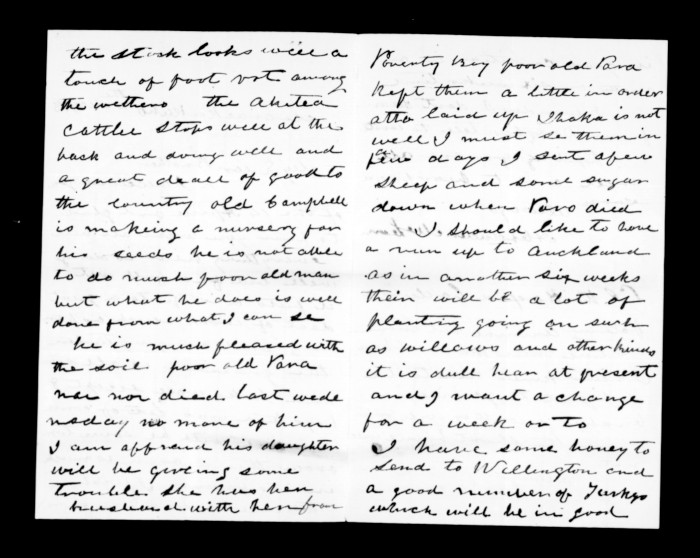 the stock looks well a
touch of foot rot among
the wethers the Akitea
Cattle stops well at the
back and doing well and
a great deall of good to
the country old Campbell
is makeing a nursery for
his seeds he is not able
to do much poor old man
but what he does is well
done from what I can se
he is much pleased with
the soil poor old Para
nor died last wede
nsday no more of him
I am affraid his daughter
will be giveing some
trouble she has her
husband with her from
Poverty Bay poor old Para
kept them a little in order
atta laid up Ihaka is not
well I must se them in
a few days I sent a few
sheep and some sugar
down when Paro died
I should like to have
a run up to Auckland
as in another six weeks
their will be a lot of
planting going on such
as willows and other kinds
it is dull hear at present
and I want a change
for a week or to
I have some honey to
send to Wellington and
a good number of Turkys
which will be in good